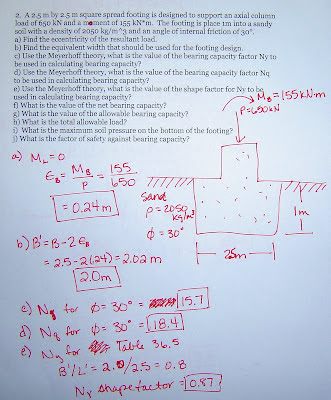 2. A 2.5 m by 2.5 m square spread footing is designed to support an axial column
load of 650 kN and a moment of 155 kN*m. The footing is place 1m into a sandy
soil with a density of 2050 kg/m^3 and an angle of internal friction of 30°.
a) Find the eccentricity of the resultant load.
b) Find the equivalent width that should be used for the footing design.
c) Use the Meyerhoff theory, what is the value of the bearing capacity factor Ny to
be used in calculating bearing capacity?
d) Use the Meyerhoff theory, what is the value of the bearing capacity factor Nq
to be used in calculating bearing capacity?
e) Use the Meyerhoff theory, what is the value of the shape factor for Ny to be
used in calculating bearing capacity?
f) What is the value of the net bearing capacity?
g) What is the value of the allowable bearing capacity?
h) What is the total allowable load?
i) What is the maximum soil pressure on the bottom of the footing?
j) What is the factor of safety against bearing capacity?
MB=155kN·m
P=650kN
a) ML=0
ƐB = MB/P = 155/650
= 0.24m
Sand
ρ=2050 kg/m³
ϕ = 30°
1m
25m
b) B'=B-2ƐB
= 2.5-2(.24) = 2.02 m
2.0m
c) Nγ for ϕ= 30° = 15.7
d) Nq for ϕ= 30° = 18.4
e) Nγ for Table 36.5
B'/L' = 2.0/2.5 = 0.8
Nγ shape factor = 0.87